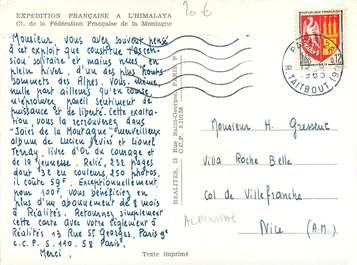 EXPEDITION FRANÇAISE A L'HIMALAYA
Cl. de la Fédération Française de la Montagne
20 €
Monsieur, vous avez souvent pensé
à cet exploit que constitue l'ascen-
sion solitaire et mains nues, en
plein hiver, d'un des plus hauts
sommets des Alpes. Vous même,
nulle part ailleurs qu'en course,
n'éprouvez pareil sentiment de
puissance et de liberté. Cette exalta-
tion vous la retrouverez dans
"Joies de la Montagne" merveilleux
album de Lucien Devies et Lionel
Terray, livre d'Or du courage et
de la jeunesse. Relié, 232 pages
dont 32 en couleurs, 250 photos,
il coûte 59F. Exceptionnellement,
pour 100F, vous bénéficiez en
plus d'un abonnement de 8 mois
à Réalités. Retournez simplement
cette carte avec votre règlement à
Réalités 13 Rue St Georges, Paris 9e
C.C.P. 5.110.58 Paris.
Merci.
REALITES, 13 Rue Saint-Georges, PARIS 9e
C.C.P. 5.110.58
REPUBLIQUE FRANÇAISE
PARIS
1965
R. TAITBOUT (9e)
Monsieur H. Gressent
Villa Roche Belle
Col de Villefranche
Nice (A.M.)
ALPINISME
Texte imprimé